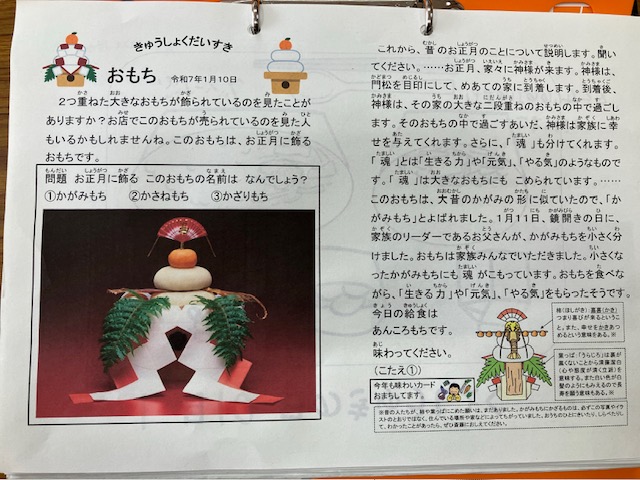 きゅうしょくだいすき
おもち 令和7年1月10日
2つ重ねた大きなおもちが飾られているのを見たことが
ありますか?お店でこのおもちが売られているのを見た人
もいるかもしれませんね。このおもちは、お正月に飾る
おもちです。
問題 お正月に飾る このおもちの名前は なんでしょう?
①かがみもち ②かさねもち ③かざりもち
これから、昔のお正月のことについて説明します。聞い
てください。……お正月、家々に神様が来ます。神様は、
門松を目印にして、めあての家に到着します。到着後、
神様は、その家の大きな二段重ねのおもちの中で過ごし
ます。そのおもちの中で過ごすあいだ、神様は家族に幸
せを与えてくれます。さらに、「魂」も分けてくれます。
「魂」とは「生きる力」や「元気」、「やる気」のようなもので
す。「魂」は大きなおもちにも こめられています。……
このおもちは、大昔のかがみの形に似ていたので、「か
がみもち」とよばれました。1月11日、鏡開きの日に、
家族のリーダーであるお父さんが、かがみもちを小さく分
けました。おもちは家族みんなでいただきました。小さく
なったかがみもちにも魂がこもっています。おもちを食べな
がら、「生きる力」や「元気」、「やる気」をもらったそうです。
今日の給食は
あんころもちです。
味わってください。
(こたえ①)
今年も味わいカード
おまちしてます。
柿(ほしがき):喜喜(かき)
つまり喜びが来るというこ
と。また、幸せをかきあつ
めるという意味もある。※
葉っぱ「うらじろ」は裏が
黒くないことから清廉潔白
(心や態度が清く立派)を
意味する。また白い色が白
髪のようにもみえるので長
寿を願う意味もある。※